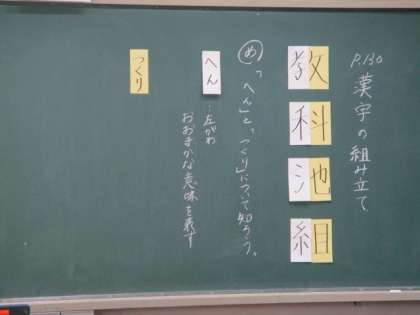 P.130 漢字の組み立て
教科池組
め「へん」と、「つくり」について知ろう。
へん
…左がわ
おおまかな意味を表す
つくり